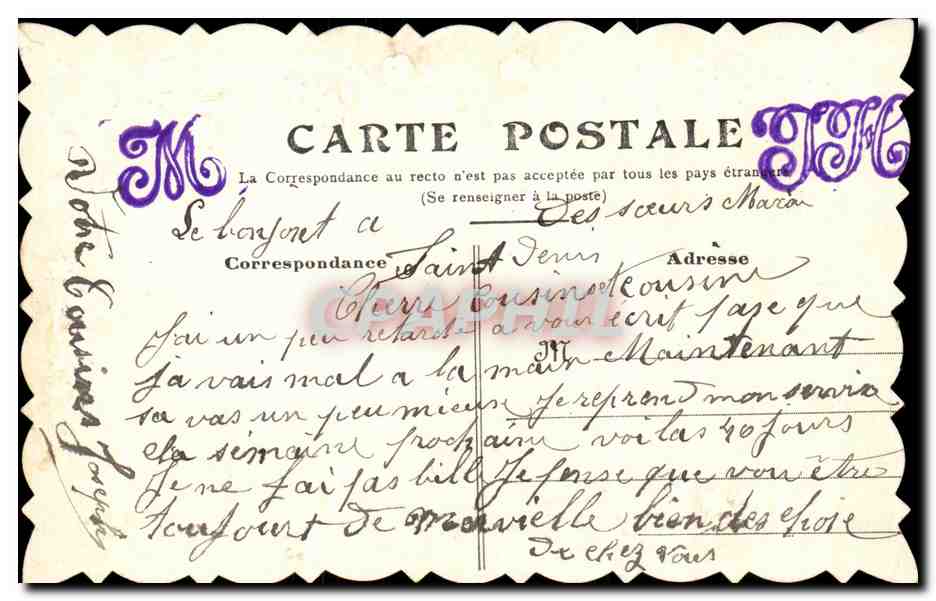 M
JH
CARTE POSTALE
La Correspondance au recto n'est pas acceptée par tous les pays étrangers
(Se renseigner à la poste)
Le bonjort a des sœurs
Correspondance
Adresse
Saint Denis
Cherr Cousin et Cousine
J'ai un peu retardé a vour écrit pase que
M
j'a vais mal a la main Maintenant
sa vas un peu mieux Je reprend mon service
la semaine prochaine voilas 40 jours
Je ne j'ai pas Je pense que vou être
toujourt de mervielle bien des chose
de chez vous
Votre Cousin Joseph